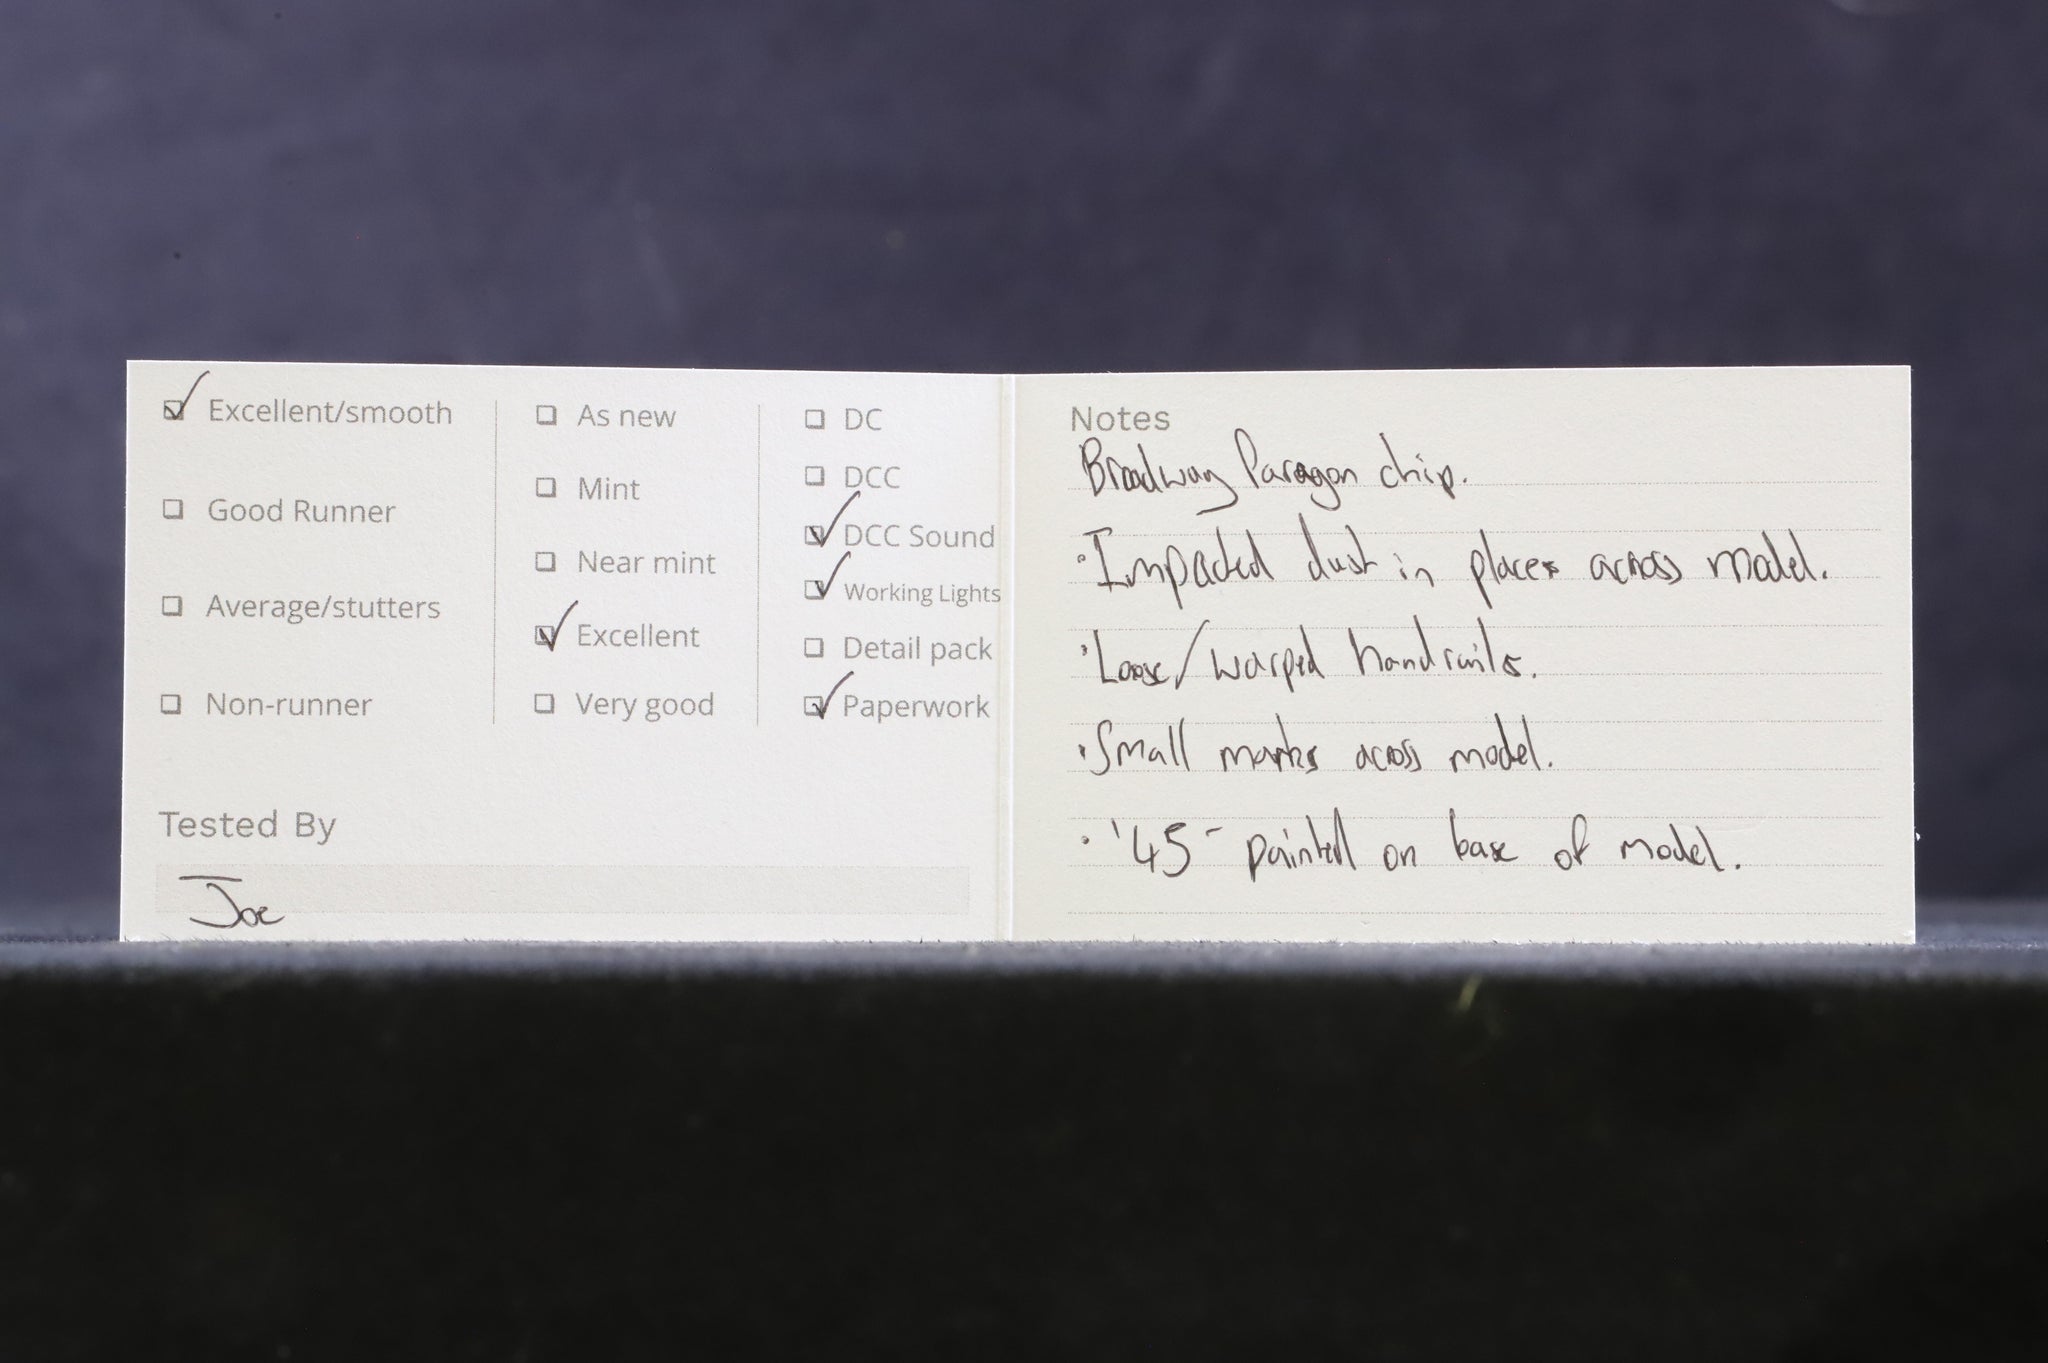 Excellent/smooth
Good Runner
Average/stutters
Non-runner
As new
Mint
Near mint
Excellent
Very good
DC
DCC
DCC Sound
Working Lights
Detail pack
Paperwork
Tested By
Joe
Notes
Broadway Paragon chip.
·Impacted dust in places across model.
·Loose/warped handrails.
·Small marks across model.
·'45' painted on base of model.